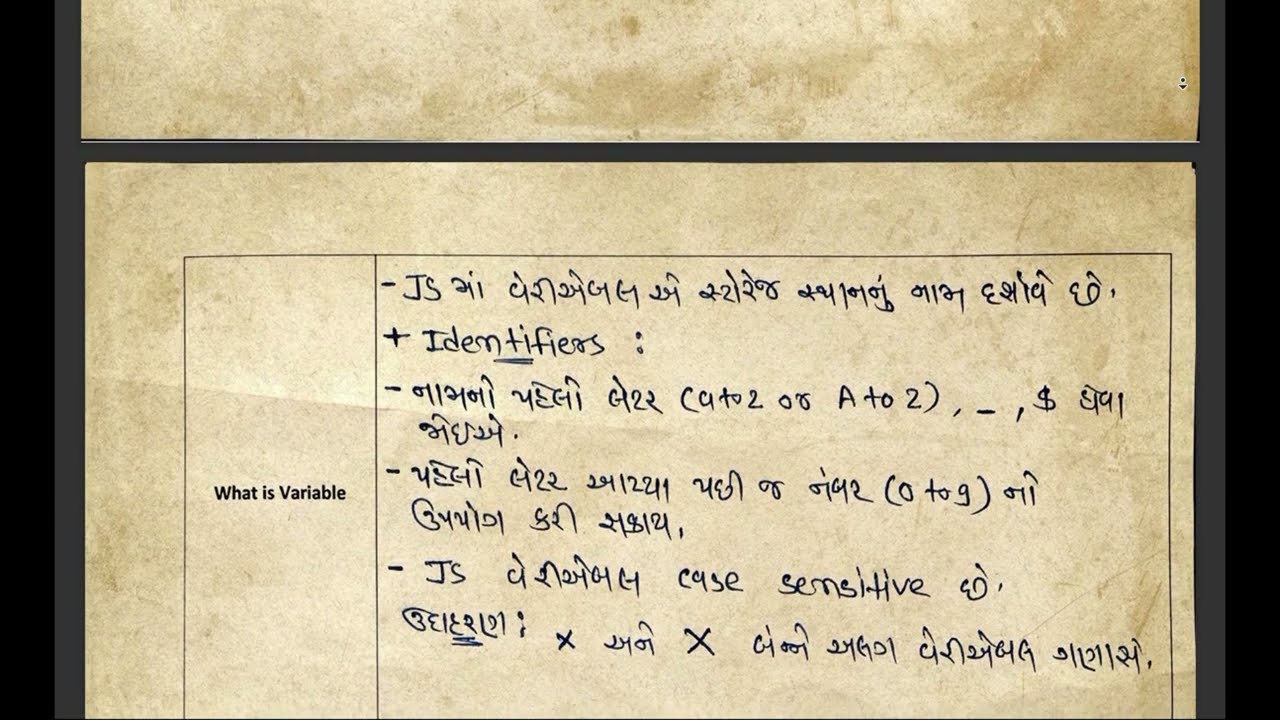 What is Variable
- JS માં વેરીએબલ એ સ્ટોરેજ સ્થાનનું નામ દર્શાવે છે.
+ Identifiers :
- નામનો પહેલો લેટર (a to z or A to Z), _ , $ હોવા
જોઇએ.
- પહેલો લેટર આવ્યા પછી જ નંબર (0 to 9) નો
ઉપયોગ કરી સકાય.
- JS વેરીએબલ case sensitive છે.
ઉદાહરણ : x અને X બંન્ને અલગ વેરીએબલ ગણાસે.